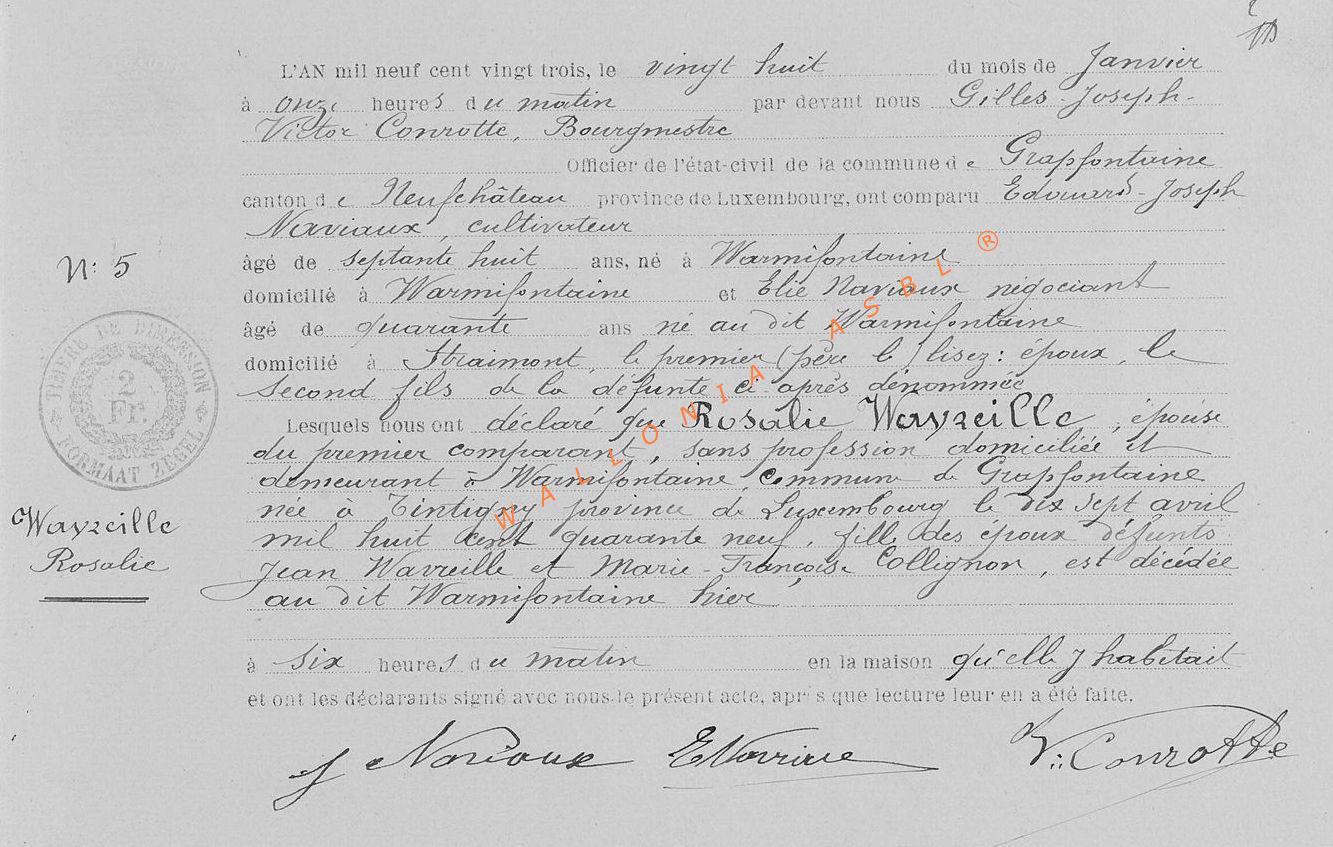 L'AN mil neuf cent vingt trois, le vingt huit du mois de Janvier
à onze heures du matin par devant nous Gilles-Joseph-
Victor Conrotte, Bourgmestre
Officier de l'état-civil de la commune de Grapfontaine
canton de Neufchâteau province de Luxembourg, ont comparu Edouard-Joseph
Naviaux, cultivateur
âgé de septante huit ans, né à Warmifontaine
domicilié à Warmifontaine et Elie Naviaux négociant
âgé de quarante ans né au dit Warmifontaine
domicilié à Straimont, le premier (père le) lisez: époux, le
second fils de la défunte ci après dénommée
Lesquels nous ont déclaré que Rosalie Wavreille, épouse
du premier comparant, sans profession domiciliée et
demeurant à Warmifontaine, commune de Grapfontaine
née à Tintigny province de Luxembourg le dix sept avril
mil huit cent quarante neuf, fille des époux défunts
Jean Wavreille et Marie-Françoise Collignon, est décédée
au dit Warmifontaine hier
à six heures du matin en la maison qu'elle y habitait
et ont les déclarants signé avec nous le présent acte, après que lecture leur en a été faite.
J Naviaux E Naviaux V: Conrotte
N: 5
TIMBRE DE DIMENSION
2
Fr.
FORMAAT ZEGEL
Wavreille
Rosalie
WALLONIA ASBL ®